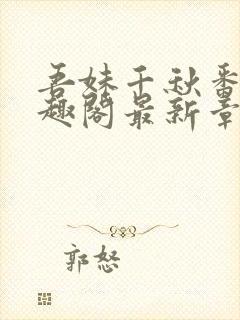 吾妹千秋番
趣阁最新章
郭怒